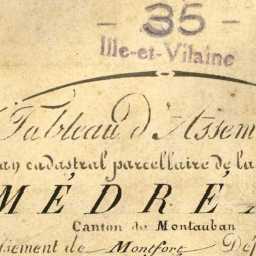 - 35 -
Ille-et-Vilaine
Tableau d'Assem
an cadastral parcellaire de la
MÉDRÉ
Canton de Montauban
issement de Montfort Dép